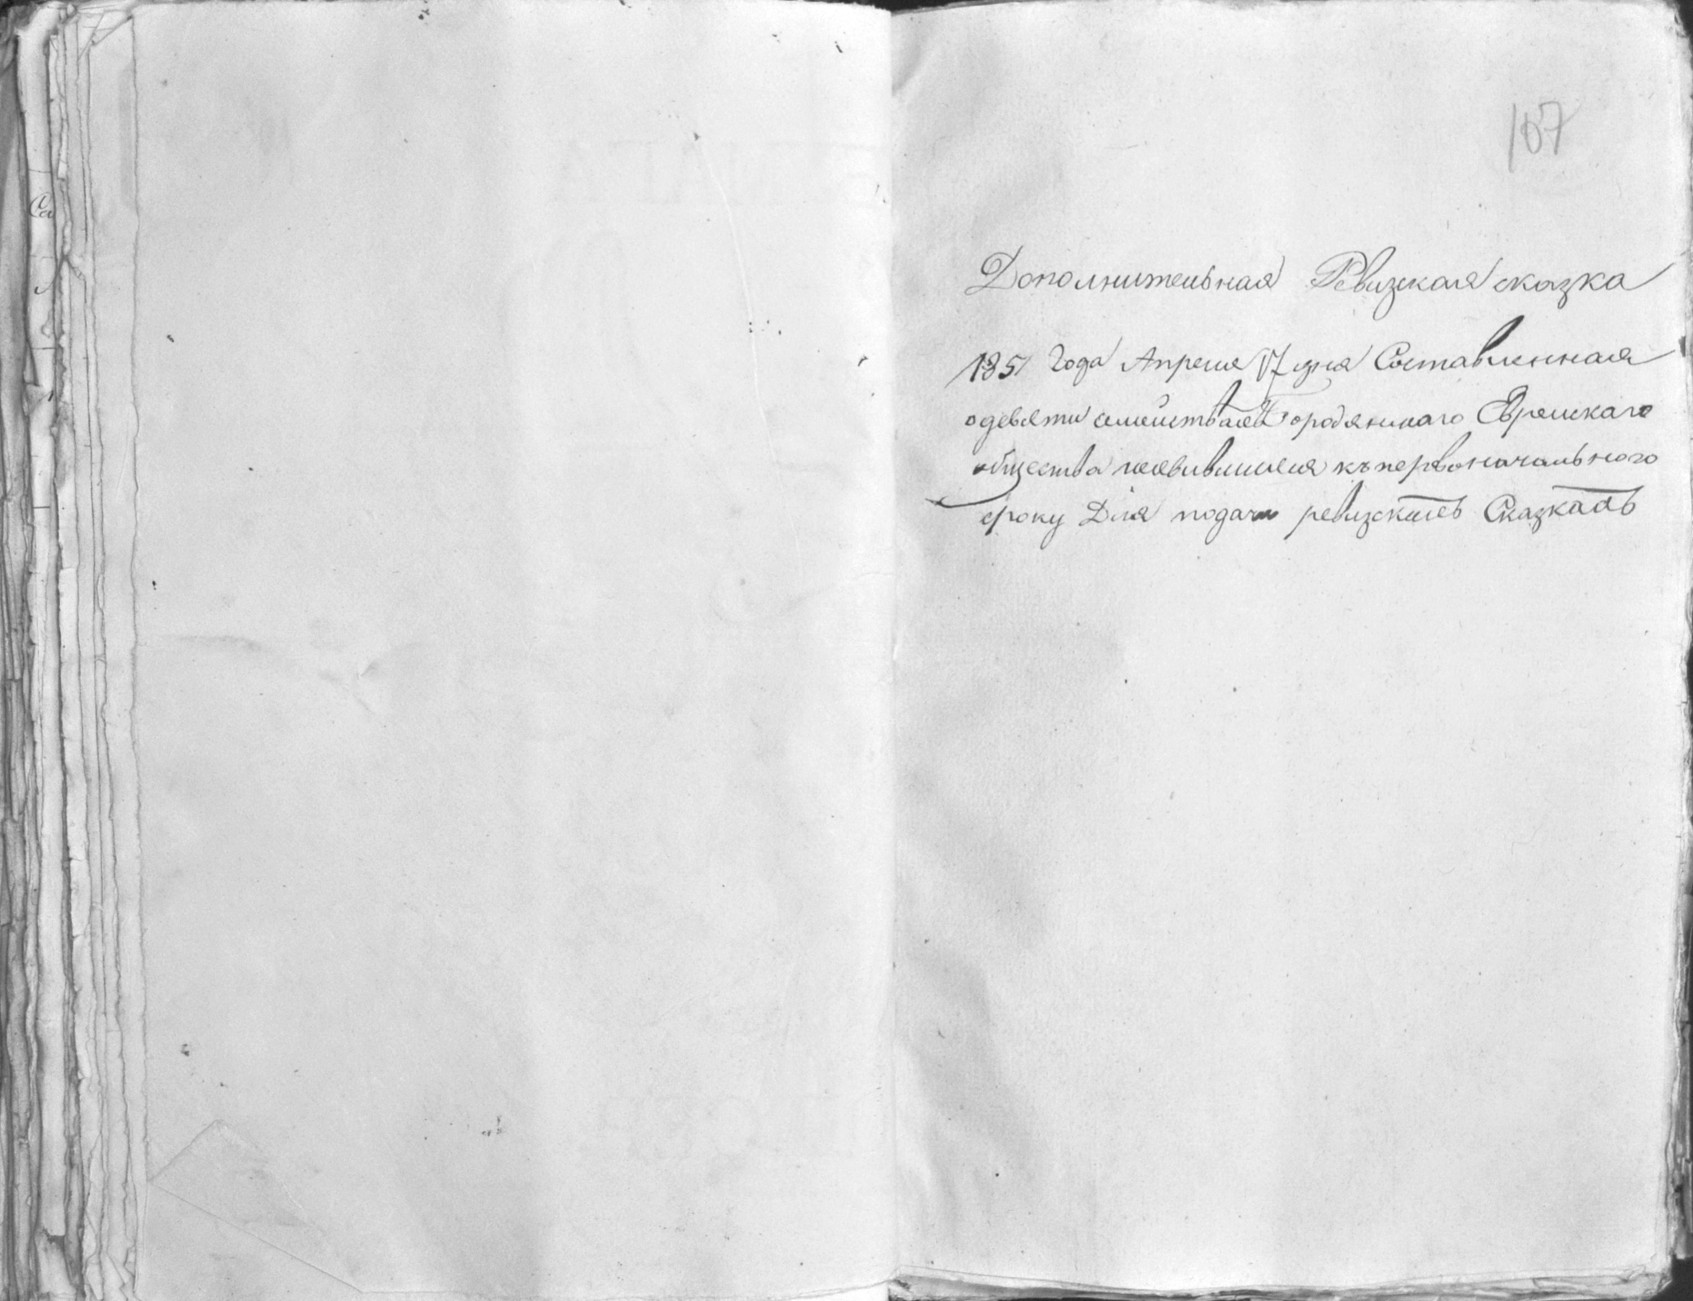 107
Дополнительная Ревизская сказка
1851 Года Апреля 17 дня Составленная
одевяти семействахъ Бородянскаго Еврейскаго
общества неявившихся къ первоначальнаго
сроку Для подачи ревизскихъ Сказкахъ
Са